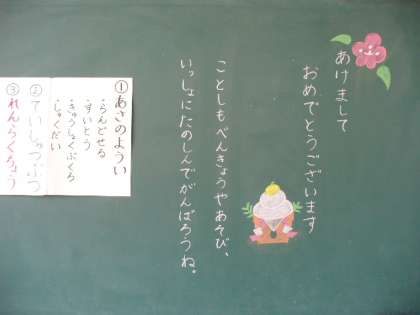 あけまして
おめでとうございます
ことしもべんきょうやあそび、
いっしょにたのしんでがんばろうね。
①あさのようい
・らんどせる
・すいとう
・きゅうしょくぶくろ
・しゅくだい
②ていしゅつぶつ
③れんらくちょう